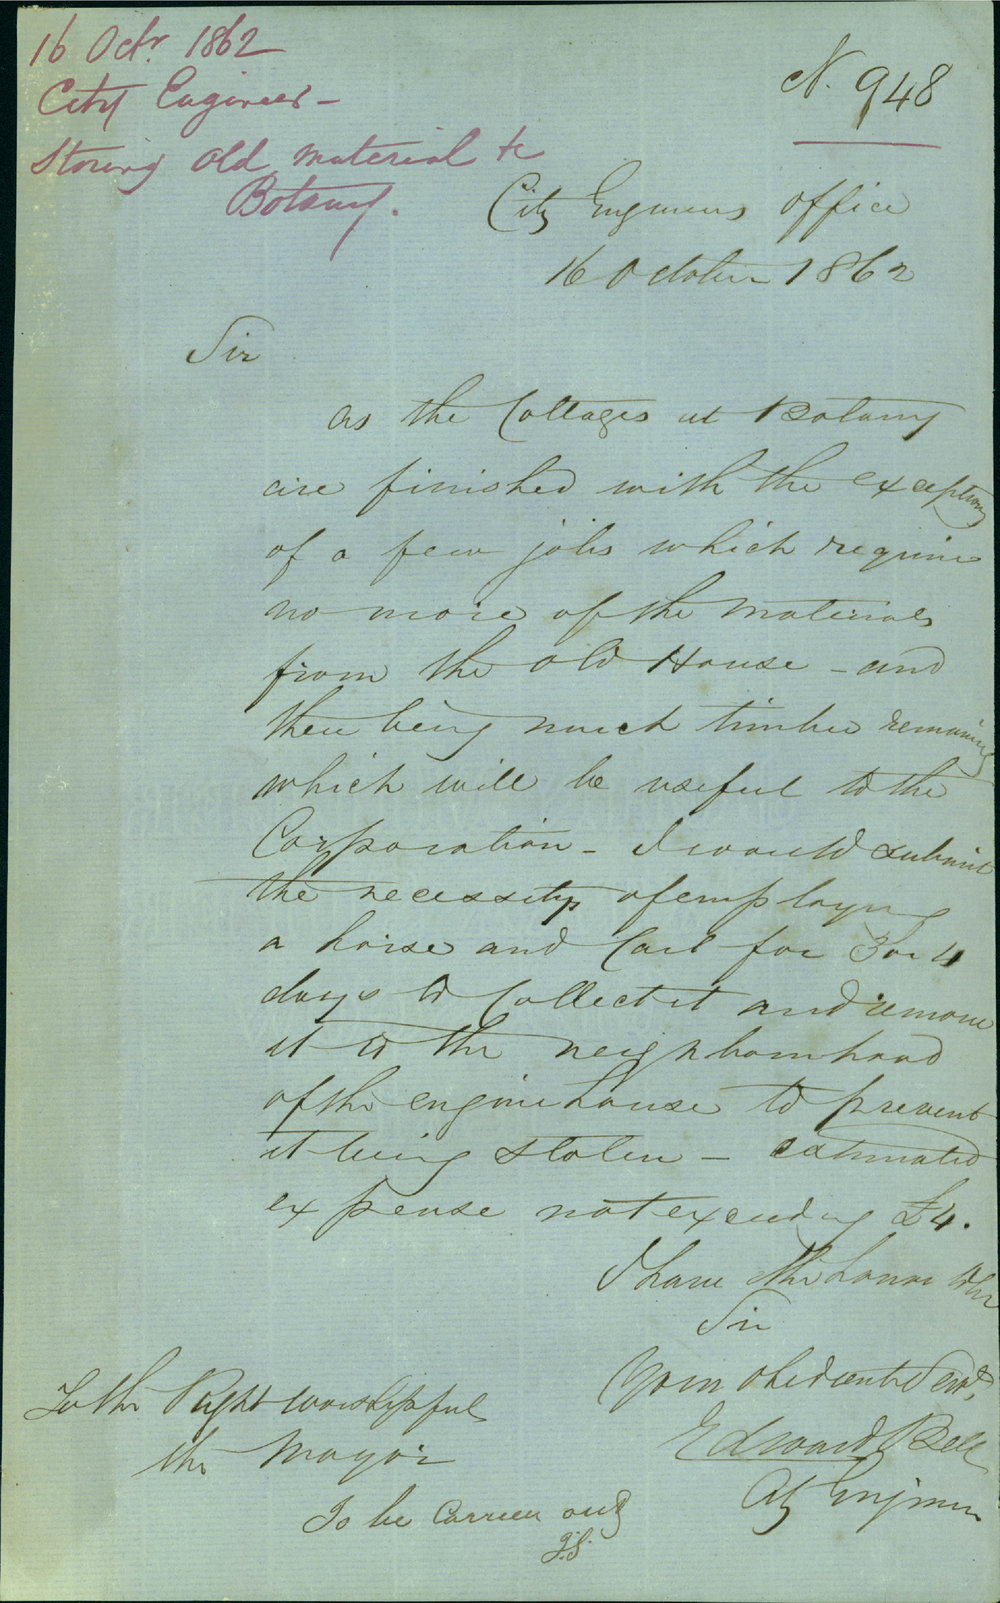 16 Octr. 1862
City Engineer -
Storing Old Material &c
Botany.
N. 948
City Engineers Office
16 October 1862
Sir
As the Cottages at Botany
are finished with the exception
of a few jobs which require
no more of the Materials
from the Old House - and
there being much timber remaining
which will be useful to the
Corporation - I would submit
the necessity of employing
a horse and Cart for 3 or 4
days to Collect it and remove
it to the neighbourhood
of the engine house to prevent
it being stolen - estimated
expense not exceeding £4.
I have the honor to be
Sir
Your obedient Servt,
Edward Bell
City Engineer
To the Right Worshipful
the Mayor
To be Carried out